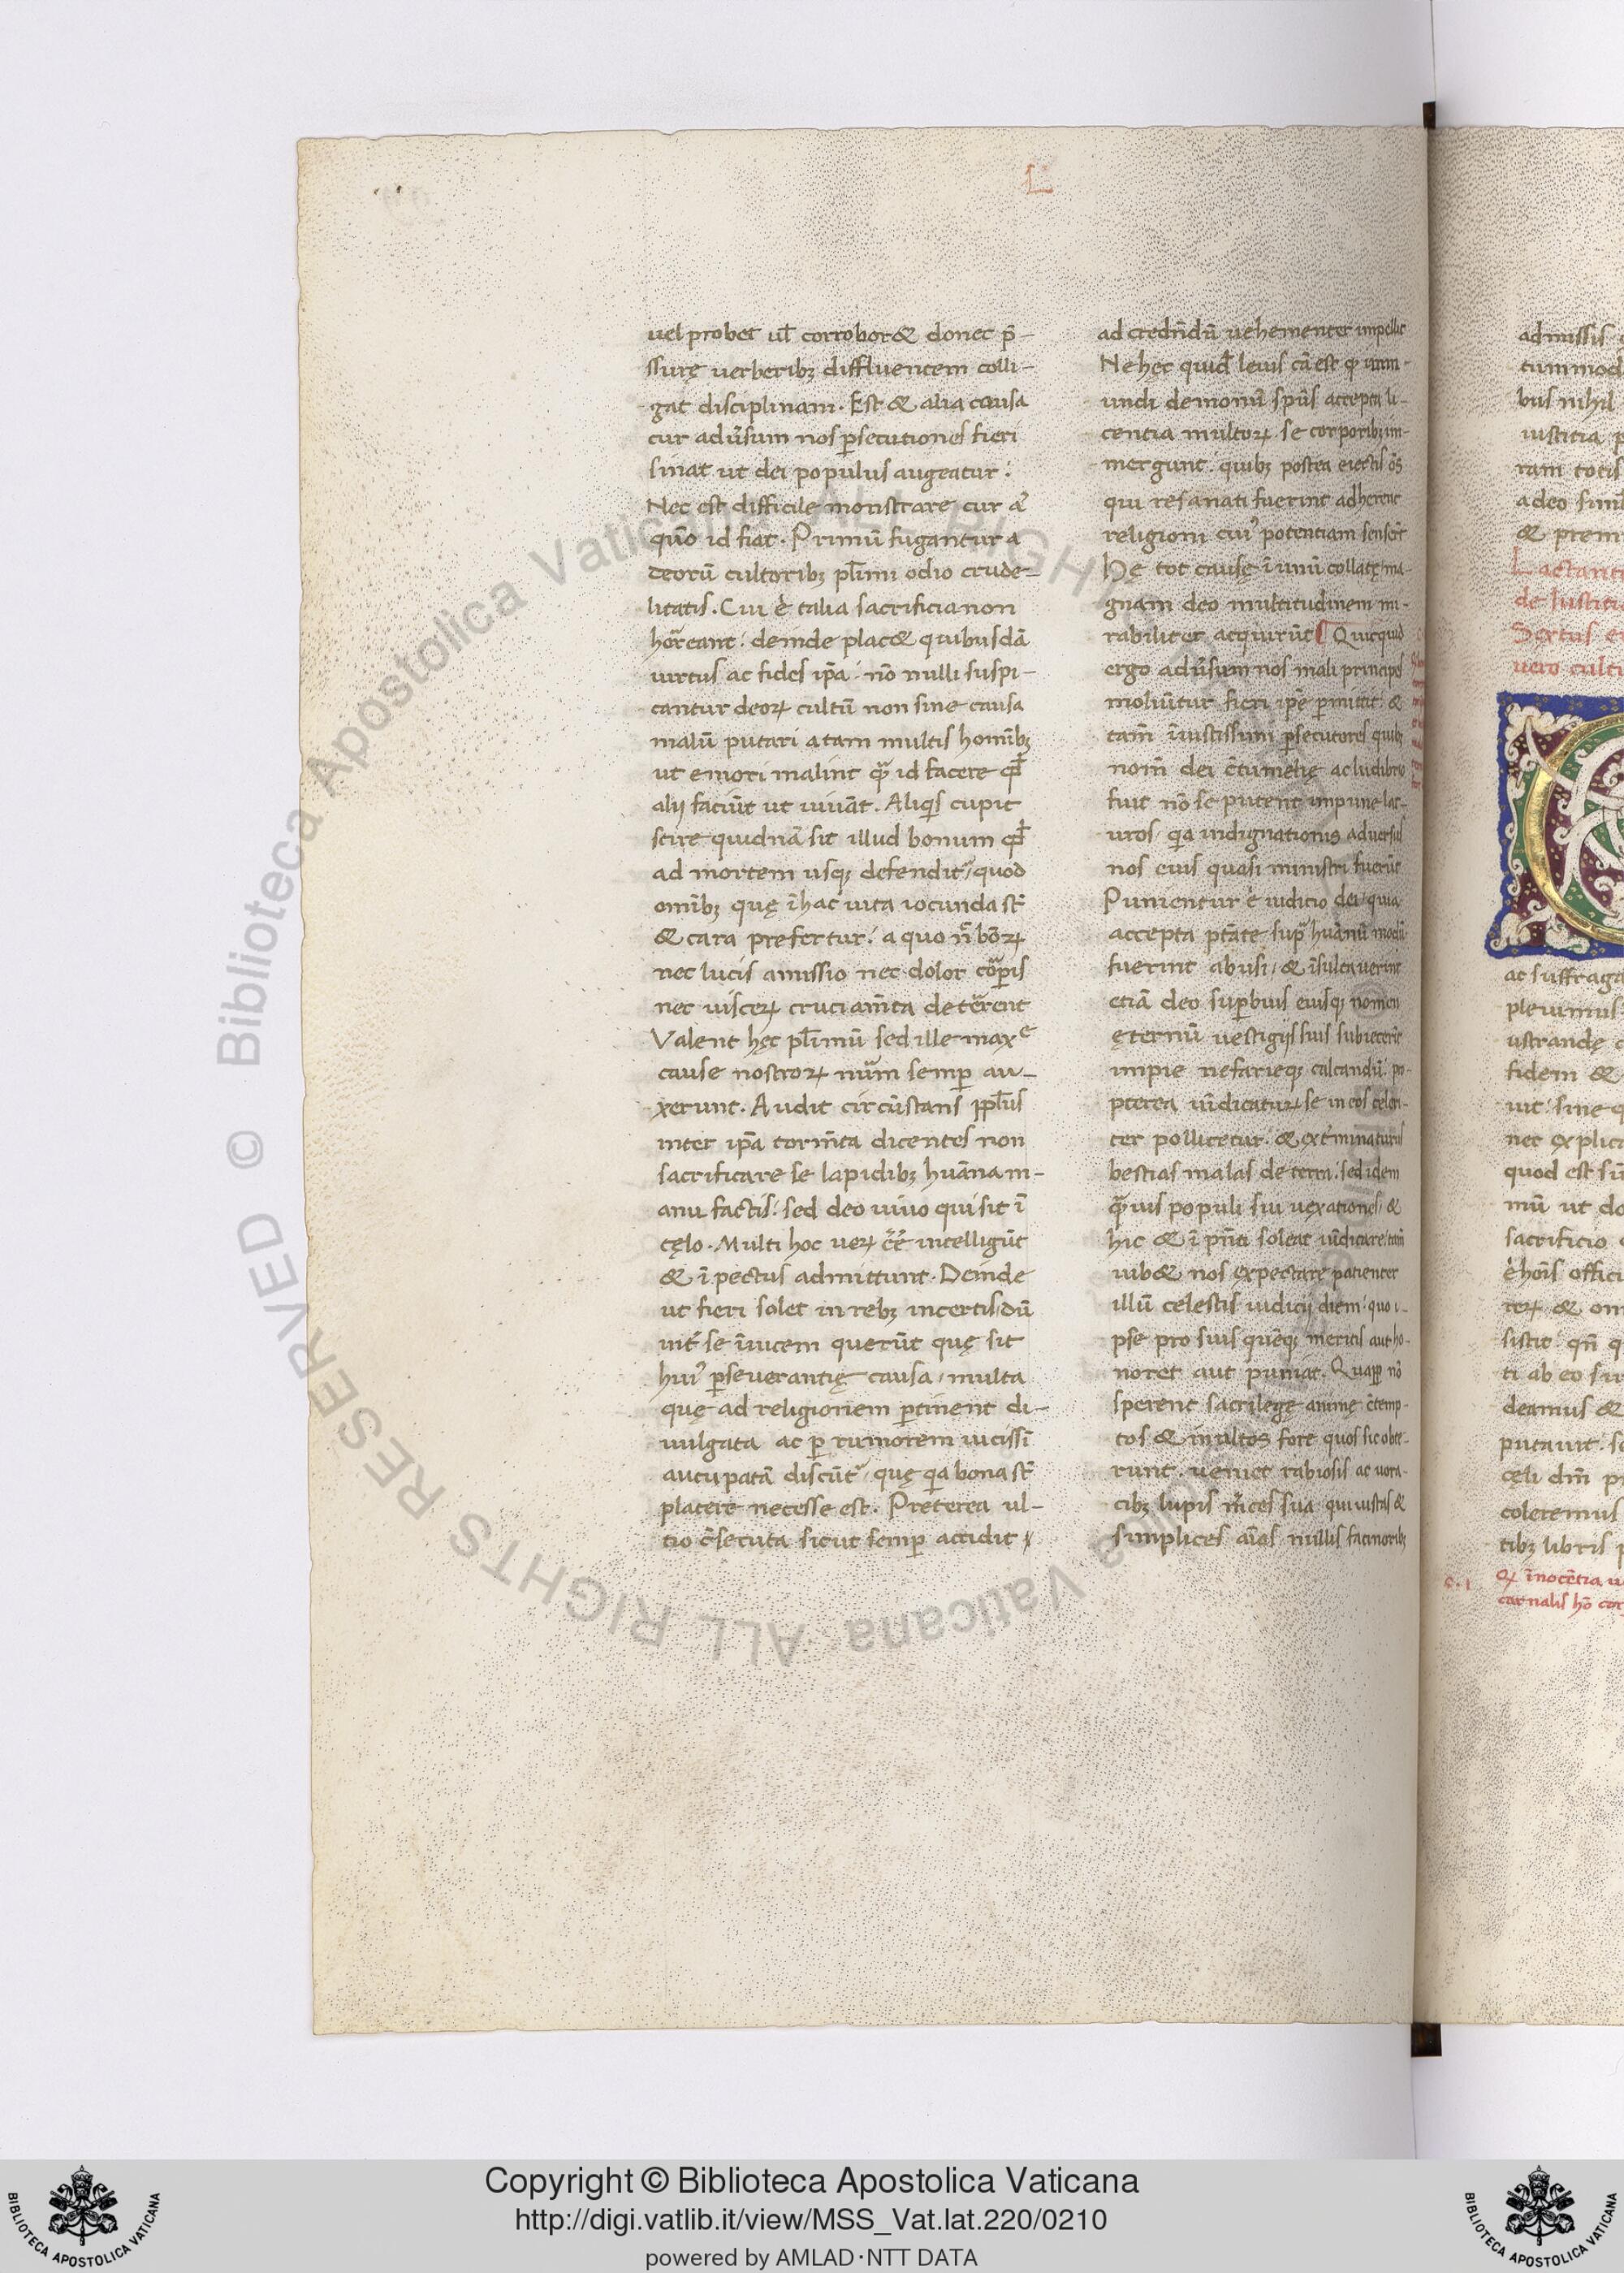 L
uel probet ul̄ corrobor& donec p̄-
ssurę uerberibꝫ diffluentem colli-
gat disciplinam. Est & alia causa
cur adūsum nos ꝑsecutiones fieri
sinat ut dei populus augeatur:
Nec est difficile monstrare cur a͛
quō id fiat. Primū fugantur a
deorū cultoribꝫ pl̄imi odio crude-
litatis. Cui ē talia sacrificia non
horreant: deinde plac& quibusdā
uirtus ac fides ip̄a: nō nulli suspi-
cantur deoꝝ cultū non sine causa
malū putari a tam multis hominibꝫ
ut emori malint qᷓ id facere qđ
alij faciūt ut uiuāt. Aliqis cupit
scire quidnā sit illud bonum qđ
ad mortem usqꝫ defendit, quod
omibꝫ quę ī hac uita iocunda st̄
& cara prefertur: a quo n̄ bōꝝ
nec lucis amissio nec dolor corꝑis
nec uisceꝝ cruciam̄ta deterrent
Valent hęc pl̄imū sed ille maxᵉ
cause nostroꝝ num̄ semꝑ au-
xerunt. Audit circūstans ppl̄us
inter ip̄a torm̄ta dicentes non
sacrificare se lapidibꝫ huāna m-
anu factis: sed deo uiuo qui sit ī
cęlo. Multi hoc ueꝝ ēē intelligūt
& ī pectus admittunt. Deinde
ut fieri solet in rebꝫ incertis dū
int͛ se īuicem querūt quę sit
hui᾽ ꝑseuerantię causa, multa
quę ad religionem ꝑtinent di-
uulgata ac ꝑ rumorem uicissī
aucupatā discūt, quę qa bona st̄
placere necesse est. Preterea ul-
tio c̄secuta sicut semꝑ accidit
ad credn̄dū uehementer impellit
Ne hęc quid̄ leuis cā est ꝙ imm-
undi demonū spūs accepta li-
centia multoꝝ se corporibꝫ im-
mergunt: quibꝫ postea eiectis ōs
qui resanati fuerint adherent
religioni cui᾽ potentiam senserūt
Hę tot causę ī unū collatę ma-
gnam deo multitudinem mi-
rabiliter acquirūt Quicquid
ergo adūsum nos mali principes
moliūtur fieri ip̄e ꝑmittit: &
tam̄ īiustissimi ꝑsecutores quibꝫ
nom̄ dei c̄tumelię ac ludibrio
fuit nō se putent impune lat-
uros: qa indignationis aduersus
nos eius quasi ministri fuerūt
Punientur ē iudicio dei, quia
accepta ptāte supᷓ huānū modū
fuerint abusi, & īsultauerint
etiā deo suꝑbius eiusqꝫ nomen
ęternū uestigijs suis subiecerīt
impie nefarieqꝫ calcandū: pro-
pterea uīdicatuꝝ se in eos celeri-
ter pollicetur: & ext͛minaturus
bestias malas de terra: sed idem
qᷓuis populi sui uexationes, &
hic & ī pn̄ti soleat uīdicare tam̄
iub& nos expectare patienter
illū celestis iudicij diem: quo i-
pse pro suis quēqꝫ meritis aut ho-
noret aut puniat. Quaꝓp nō
sperent sacrilegę animę c̄temp-
tos & inultos fore quos sic obte-
runt. ueniet rabiosis ac uora-
cibꝫ lupis m͛ces sua: qui iustas &
simplices aīas nullis facinoribꝫ
admissis
tummod
bus nihil
iustitia p
ram totis
adeo sim
& prem
Lactant
de Iustiti
Sextus
uero culti
ac suffraga
pleuimus
ustrandę
fidem &
uit: sine q
nec explica
quod est sū
mū ut do
sacrificio
ē hoīs offici
teꝝ & om
sistit: qn̄ q
ti ab eo su
deamus &
putauit. s
cęli dm̄ p
coleremus
tibꝫ libris p
c.1
oꝝ īnocētia u
carnalis hō cor
© Biblioteca Apostolica Vaticana ALL RIGHTS RESERVED
Copyright © Biblioteca Apostolica Vaticana
http://digi.vatlib.it/view/MSS_Vat.lat.220/0210
powered by AMLAD·NTT DATA
BIBLIOTECA APOSTOLICA VATICANA
BIBLIOTECA APOSTOLICA VATICANA